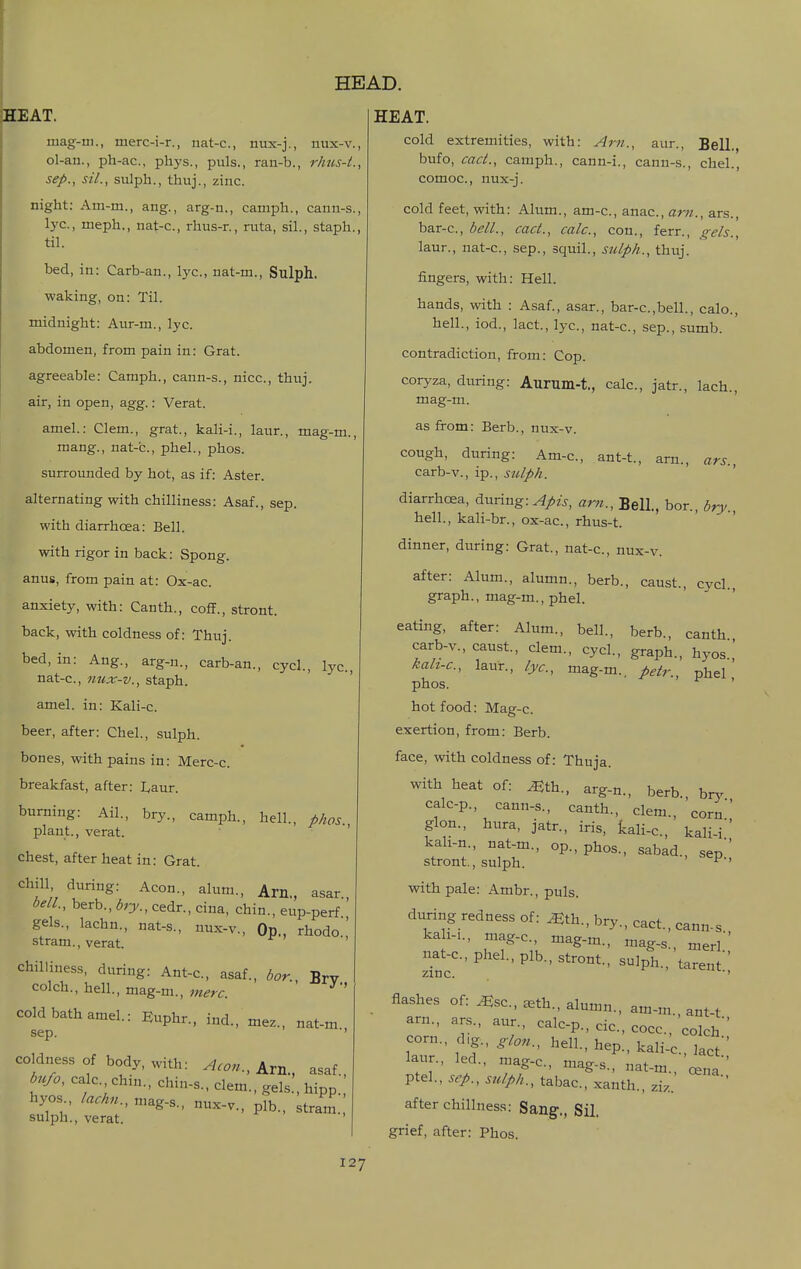 HEAD.
HEAT.
mag-m., merc-i-r., nat-c., nux-j., nux-v.,
ol-an., ph-ac., phys., puls., ran-b., rhus-t.,
sep., sil., sulph., thuj., zinc.
night: Am-m., ang., arg-n., camph., cann-s.,
lyc., meph., nat-c., rhus-r., ruta, sil., staph.,
til.
bed, in: Carb-an., lyc., nat-m., Sulph.
waking, on: Til.
midnight: Aur-m., lyc.
abdomen, from pain in: Grat.
agreeable: Camph., cann-s., nicc., thuj.
air, in open, agg.: Verat.
amel.: Clem., grat., kali-i., laur., mag-m.,
mang., nat-c., phel., phos.
surrounded by hot, as if: Aster.
alternating with chilliness: Asaf., sep.
with diarrhœa: Bell.
with rigor in back: Spong.
anus, from pain at: Ox-ac.
anxiety, with: Canth., coff., stront.
back, with coldness of: Thuj.
bed, in: Ang., arg-n., carb-an., cycl., lyc.,
nat-c., nux-v., staph.
amel. in: Kali-c.
beer, after: Chel., sulph.
bones, with pains in: Merc-c.
breakfast, after: Laur.
burning: Ail., bry., camph., hell., phos.,
plant., verat.
chest, after heat in: Grat.
chill, during: Acon., alum., Arn., asar.,
bell., berb., bry., cedr., cina, chin., eup-perf.,
gels., lachn., nat-s., nux-v., Op., rhodo.,
stram., verat.
chilliness, during: Ant-c., asaf., bor., Bry.,
colch., hell., mag-m., merc.
cold bath amel.: Euphr., ind., mez., nat-m.,
sep.
coldness of body, with: Acon., Arn., asaf.,
bufo, calc., chin., chin-s., clem., gels., hipp.,
hyos., lachn., mag-s., nux-v., plb., stram.,
sulph., verat.
HEAT.
cold extremities, with: Arn., aur., Bell.,
bufo, cact., camph., cann-i., cann-s., chel.,
comoc., nux-j.
cold feet, with: Alum., am-c., anac., arn., ars.,
bar-c., bell., cact., calc., con., ferr., gels.,
laur., nat-c., sep., squil., sulph., thuj.
fingers, with: Hell.
hands, with : Asaf., asar., bar-c.,bell., calo.,
hell., iod., lact., lyc., nat-c., sep., sumb.
contradiction, from: Cop.
coryza, during: Aurum-t., calc., jatr., lach.,
mag-m.
as from: Berb., nux-v.
cough, during: Am-c., ant-t., arn., ars.,
carb-v., ip., sulph.
diarrhœa, during: Apis, arn., Bell., bor., bry.,
hell., kali-br., ox-ac., rhus-t.
dinner, during: Grat., nat-c., nux-v.
after: Alum., alumn., berb., caust., cycl.,
graph., mag-m., phel.
eating, after: Alum., bell., berb., canth.,
carb-v., caust., clem., cycl., graph., hyos.,
kali-c., laur., lyc., mag-m., petr., phel.,
phos.
hot food: Mag-c.
exertion, from: Berb.
face, with coldness of: Thuja.
with heat of: Æth., arg-n., berb., bry.,
calc-p., cann-s., canth., clem., corn.,
glon., hura, jatr., iris, kali-c., kali-i.,
kali-n., nat-m., op., phos., sabad., sep.,
stront., sulph.
with pale: Ambr., puls.
during redness of: Æth., bry., cact., cann-s.,
kali-i., mag-c., mag-m., mag-s., merl.,
nat-c., phel., plb., stront., sulph., tarent.,
zinc.
flashes of: Æsc., æth., alumn., am-m., ant-t.,
arn., ars., aur., calc-p., cic., cocc., colch.,
corn., dig., glon., hell., hep., kali-c., lact.,
laur., led., mag-c., mag-s., nat-m., œna.,
ptel., sep., sulph., tabac., xanth., ziz.
after chillness: Sang., Sil.
grief, after: Phos.
127